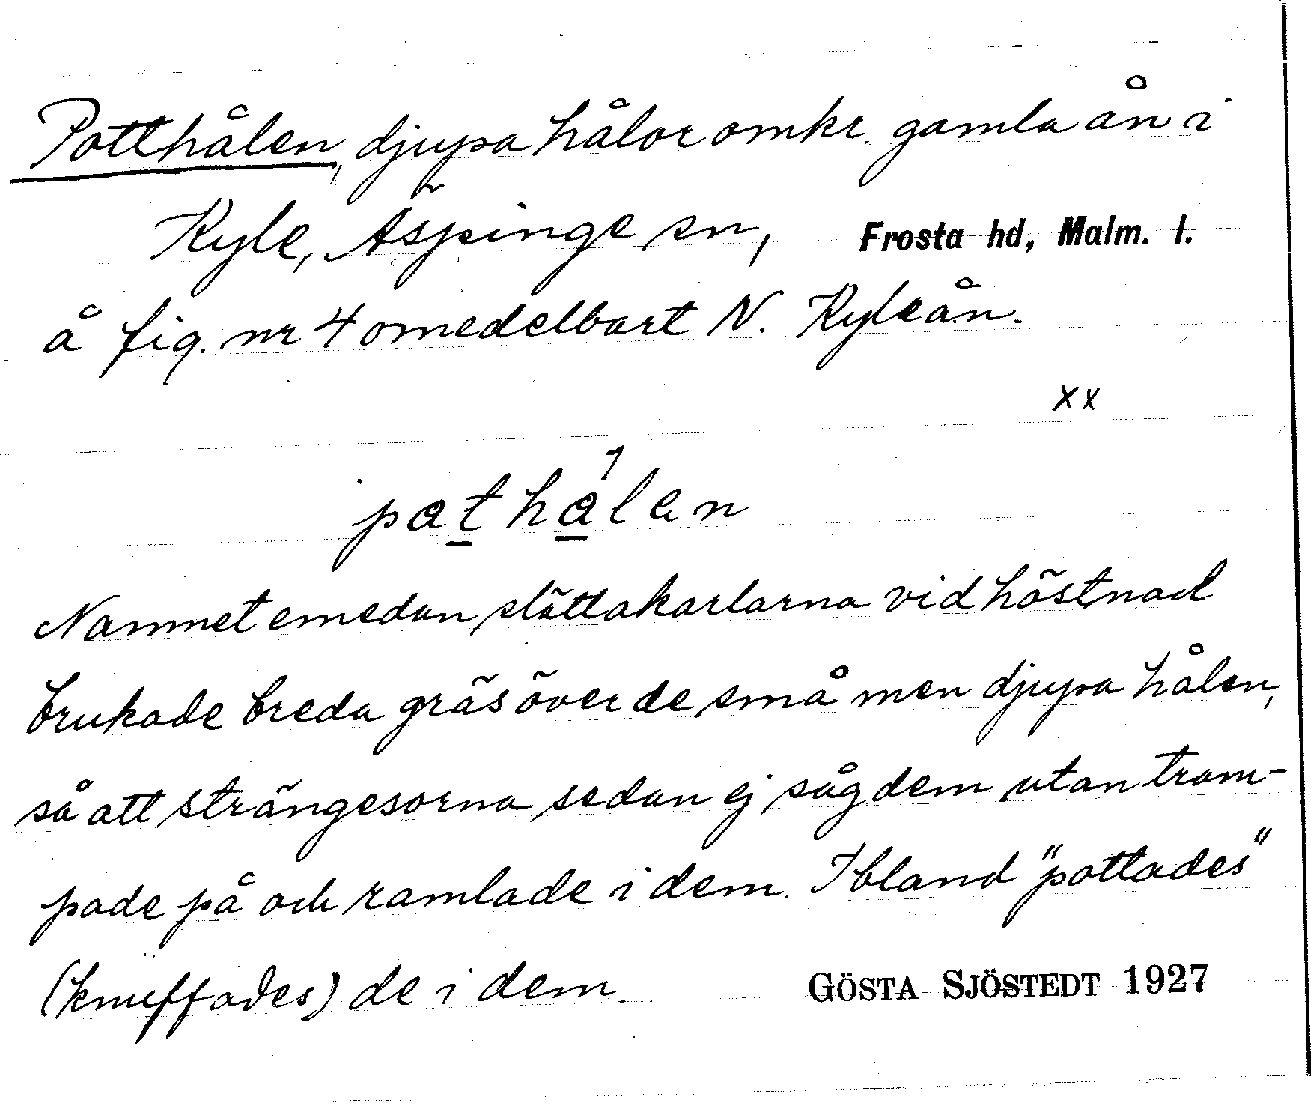 Potthålen, djupa hålor omkr. gamla ån i
Kyle, Äspinge sn, Frosta hd, Malm. l.
å fig. nr 4 omedelbart N. Kyleån.
xx
pathålen
Namnet emedan slåttakarlarna vid höstnad
brukade breda gräs över de små men djupa hålen,
så att strängesorna sedan ej såg dem utan tram-
pade på och ramlade i dem. Ibland "pottades"
(knuffades) de i dem.
GÖSTA SJÖSTEDT 1927